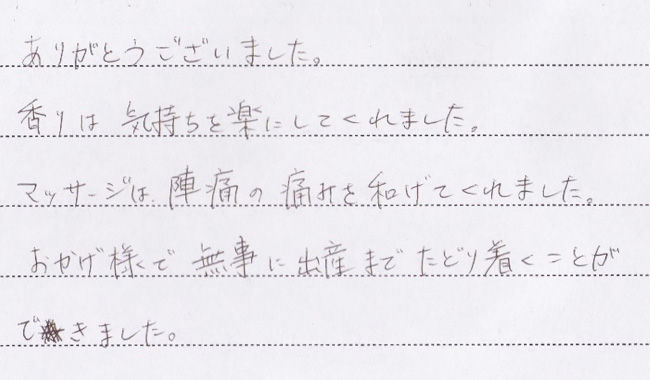 ありがとうございました。
香りは気持ちを楽にしてくれました。
マッサージは陣痛の痛みを和げてくれました。
おかげ様で無事に出産までたどり着くことが
できました。